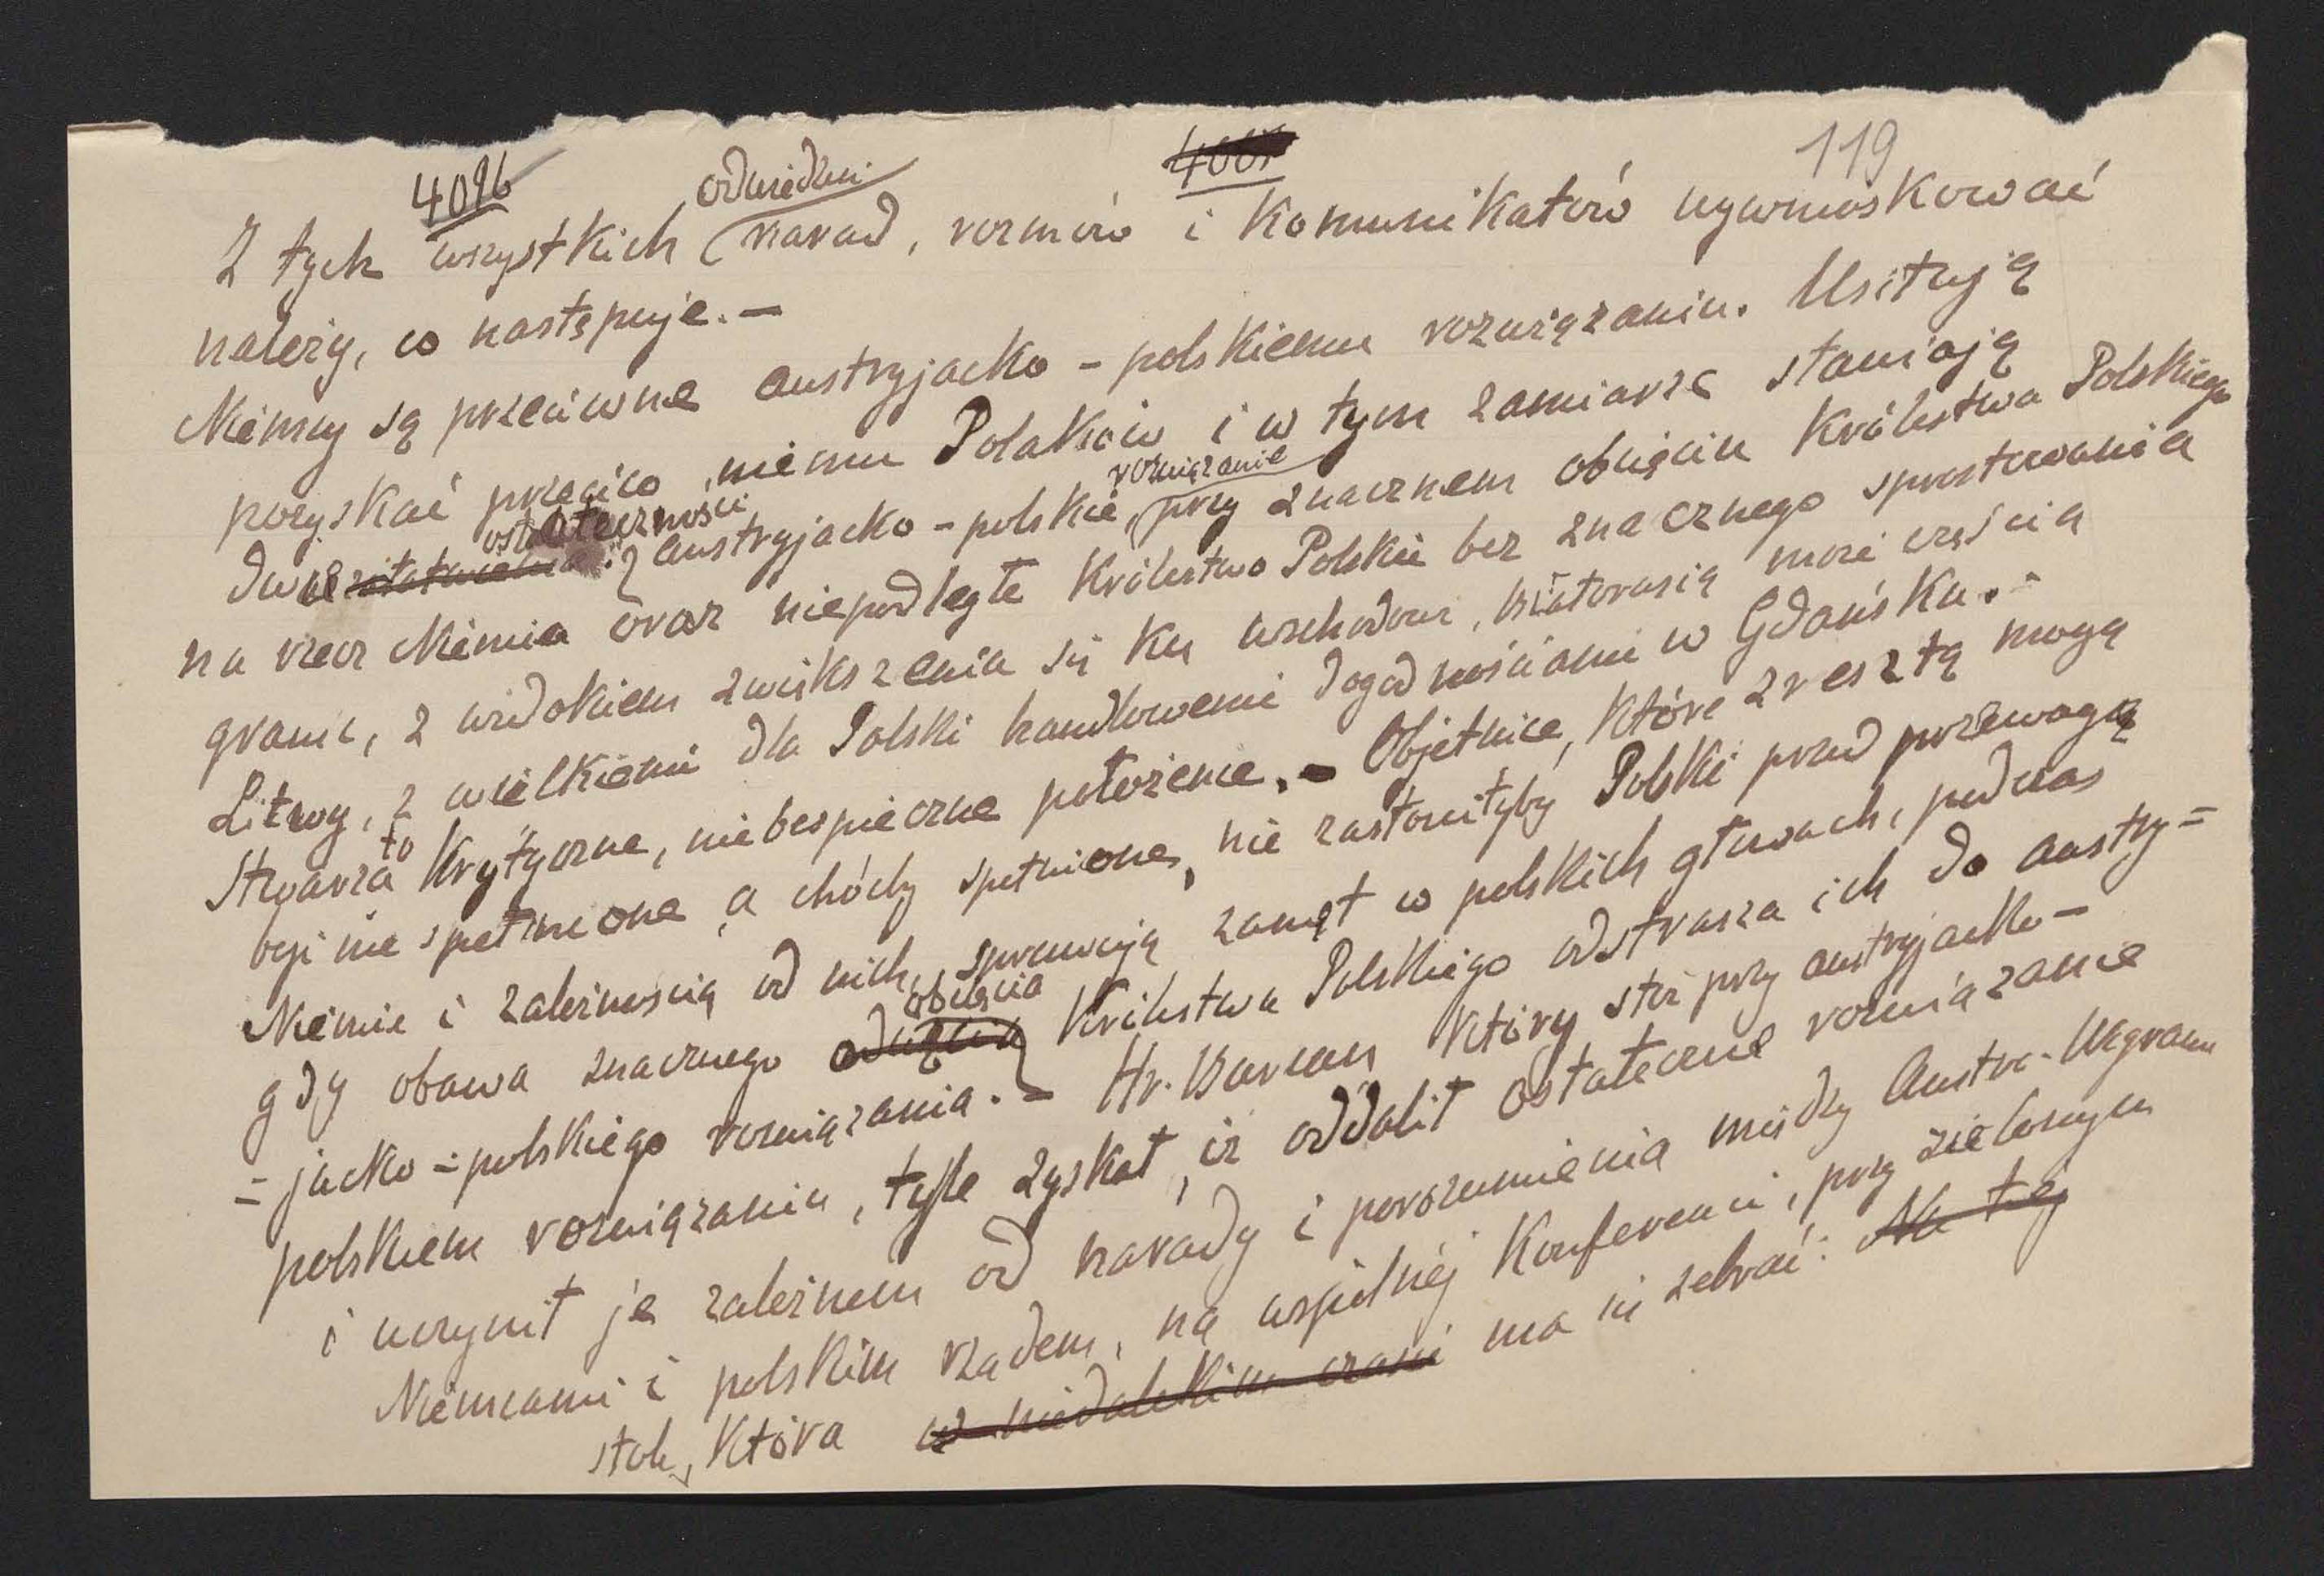 4096
119
Z tych wszystkich odwiedzin narad, rozmów i Komunikatów wywnioskować
należy, co następuje. —
Niemcy są przeciwne austryjacko - polskiemu rozwiązaniu. Usiłują
pozyskać przeciw niemu Polaków i w tym zamiarze stawiają
dwie ostateczności: austryjacko - polskie, rozwiązanie przy znacznem obcięciu Królestwa Polskiego
na rzecz Niemiec oraz niepodległe Królestwo Polskie bez znacznego sprostowania
granic, z widokiem zwiększenia się ku wschodowi, Białorusią może częścią
Litwy, z wielkiemi dla Polski handlowemi dogodnościami w Gdańsku. -
Stwarza to Krytyczne, niebezpieczne położenie. — Objetnice, które zresztą mogą
być nie spełnione, a choćby spełnione, nie zasłoniłyby Polski przed przewagą
Niemiec i zależnością od nich, sprawiają zamęt w polskich głowach, podczas
gdy obawa znacznego obcięcia Królestwa Polskiego odstrasza ich do austry=
= jacko - polskiego rozwiązania. — Hr. Burian który stoi przy austryjacko -
polskiem rozwiązaniu, tyle zyskał, iż oddalił ostateczne rozwiązanie
i uczynił je zależnem od narady i porozumienia między Austro-Węgrami
Niemcami i polskim rządem, na wspólnej Konferencji, przy zielonym
stole, która w niedalekim czasie ma się zebrać. Na tej